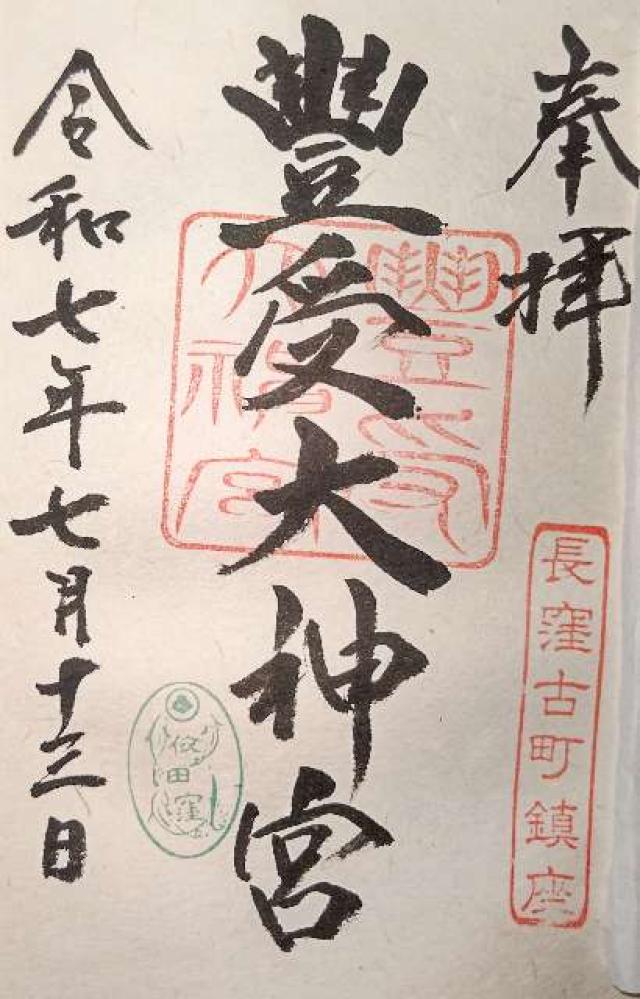 奉拝
長窪古町鎮座
豐受大神宮
豐受大神宮
令和七年七月十三日